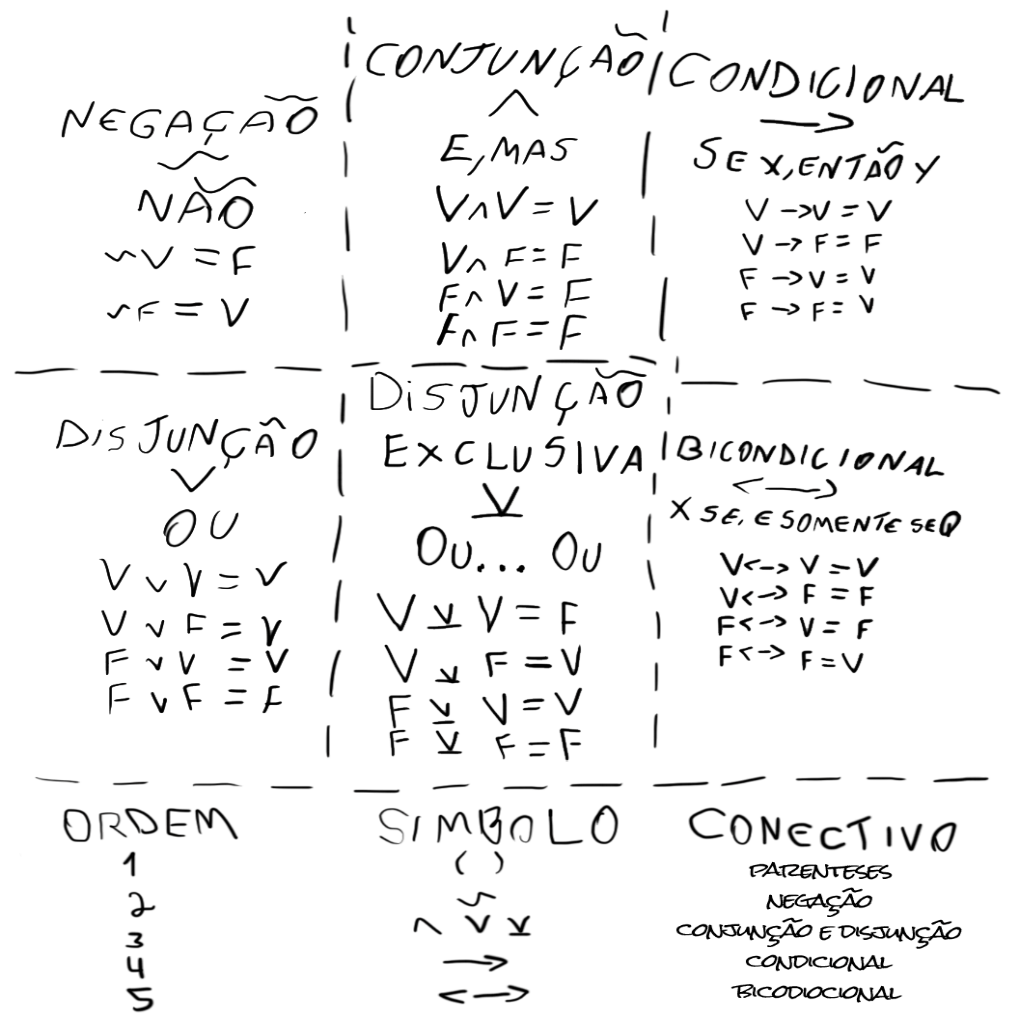 NEGAÇÃO
~
NÃO
~V = F
~F = V
CONJUNÇÃO
∧
E, MAS
V∧V = V
V∧ F = F
F∧ V = F
F∧ F = F
CONDICIONAL
→
SE X, ENTÃO Y
V → V = V
V → F = F
F → V = V
F → F = V
DISJUNÇÃO
∨
OU
V ∨ V = V
V ∨ F = V
F ∨ V = V
F ∨ F = F
DISJUNÇÃO
EXCLUSIVA
⊻
OU... OU
V ⊻ V = F
V ⊻ F = V
F ⊻ V = V
F ⊻ F = F
BICONDICIONAL
↔
X SE, E SOMENTE SE Q
V <-> V = V
V <-> F = F
F <-> V = F
F <-> F = V
ORDEM SIMBOLO CONECTIVO
1 ( ) PARENTESES
2 ~ NEGAÇÃO
3 ∧ ∨ ⊻ CONJUNÇÃO E DISJUNÇÃO
4 → CONDICIONAL
5 ↔ BICODIOCIONAL